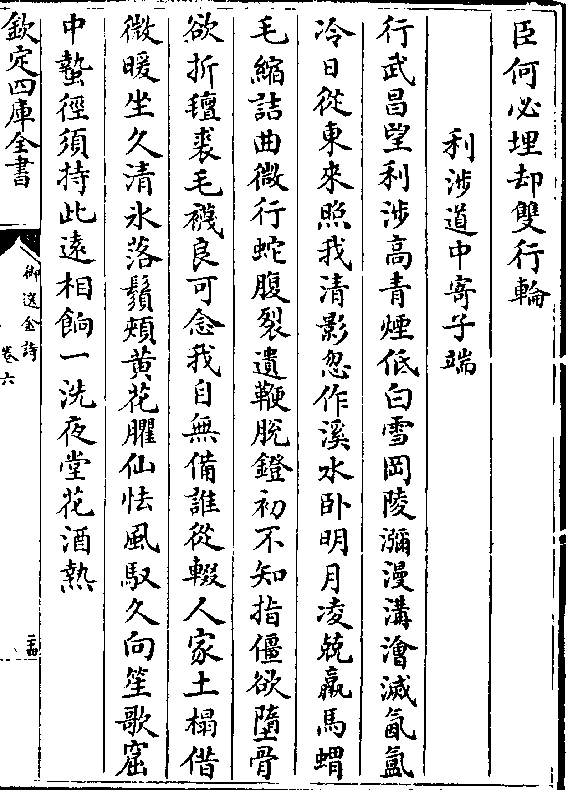 臣何必埋却雙行輪
利涉道中寄子端
行武昌望利涉高青煙低白雪岡陵瀰漫溝澮滅氤氳
冷日從東來照我清影忽作溪水卧明月凌兢羸馬蝟
毛縮詰曲微行蛇腹裂遺鞭脫鐙初不知指僵欲墮骨
欲折氊裘毛襪良可念我自無備誰從輟人家土榻借
微暖坐久清氷落鬚頰黄花臞仙怯風馭久向笙歌窟
中蟄徑須持此遠相餉一洗夜堂花酒熱
欽定四庫全書
御选金詩
卷六
二十四